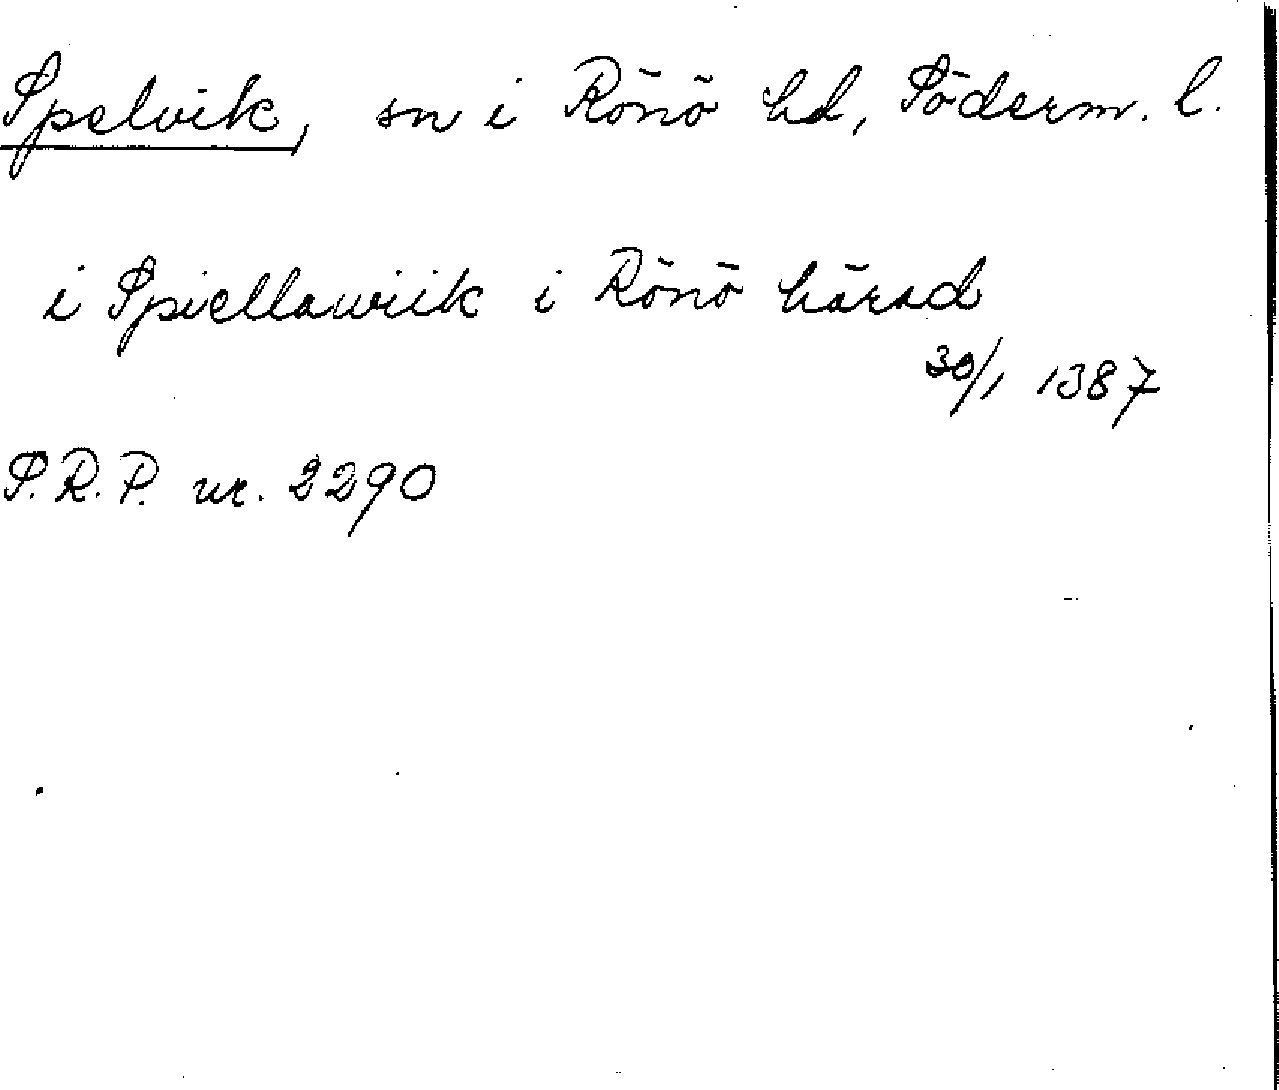 Spelvik, sn i Rönö hd, Söderm. l.
i Spiellawiik i Rönö härad
30/1 1387
S.R.P. nr. 2290